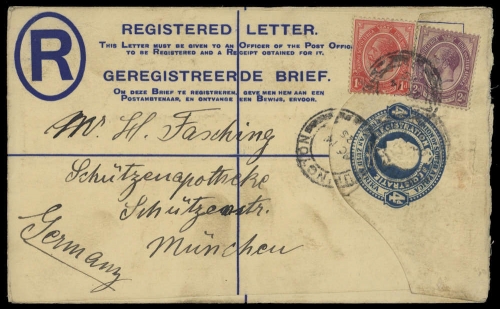 R
REGISTERED LETTER.
THIS LETTER MUST BE GIVEN TO AN OFFICER OF THE POST OFFICE
TO BE REGISTERED AND A RECEIPT OBTAINED FOR IT.
GEREGISTREERDE BRIEF.
OM DEZE BRIEF TE REGISTREREN, GEVE MEN HEM AAN EEN
POSTAMBTENAAR, EN ONTVANGE EEN BEWIJS, ERVOOR.
Mr. H. Fasching
Schützenapotheke
Schützenstr.
München
Germany